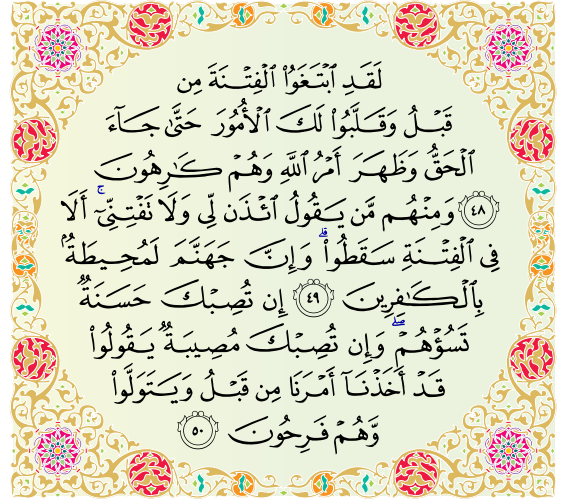 لَقَدِ ٱبْتَغَوُا۟ ٱلْفِتْنَةَ مِن
قَبْلُ وَقَلَّبُوا۟ لَكَ ٱلْأُمُورَ حَتَّىٰ جَآءَ
ٱلْحَقُّ وَظَهَرَ أَمْرُ ٱللَّهِ وَهُمْ كَـٰرِهُونَ
٤٨ وَمِنْهُم مَّن يَقُولُ ٱئْذَن لِّى وَلَا تَفْتِنِّىٓ ۚ أَلَا
فِى ٱلْفِتْنَةِ سَقَطُوا۟ ۗ وَإِنَّ جَهَنَّمَ لَمُحِيطَةٌۢ
بِٱلْكَـٰفِرِينَ ٤٩ إِن تُصِبْكَ حَسَنَةٌ
تَسُؤْهُمْ ۖ وَإِن تُصِبْكَ مُصِيبَةٌ يَقُولُوا۟
قَدْ أَخَذْنَآ أَمْرَنَا مِن قَبْلُ وَيَتَوَلَّوا۟
وَّهُمْ فَرِحُونَ ٥٠